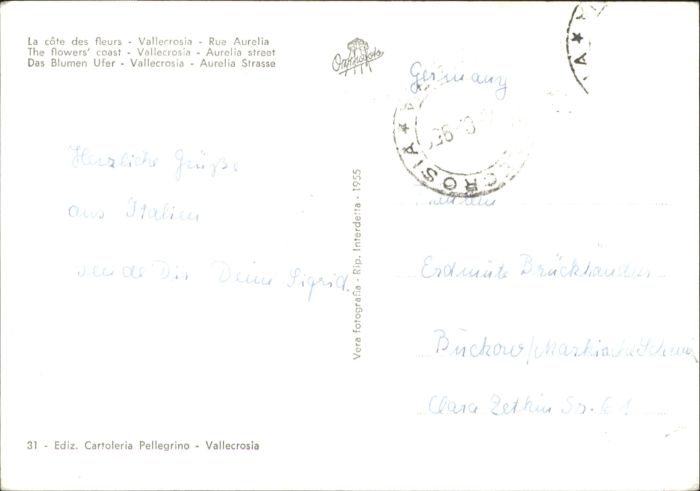 La côte des fleurs - Vallecrosia - Rue Aurelia
The flowers' coast - Vallecrosia - Aurelia street
Das Blumen Ufer - Vallecrosia - Aurelia Strasse
Germany
Herzliche Grüße
aus Italien
sendet Dir Deine Sigrid.
Vera fotografia - Rip. Interdetta - 1955
CROSIA
Erdmute
Buckow/Märkische Schweiz
Clara Zetkin Str. 61
31 - Ediz. Cartoleria Pellegrino - Vallecrosia